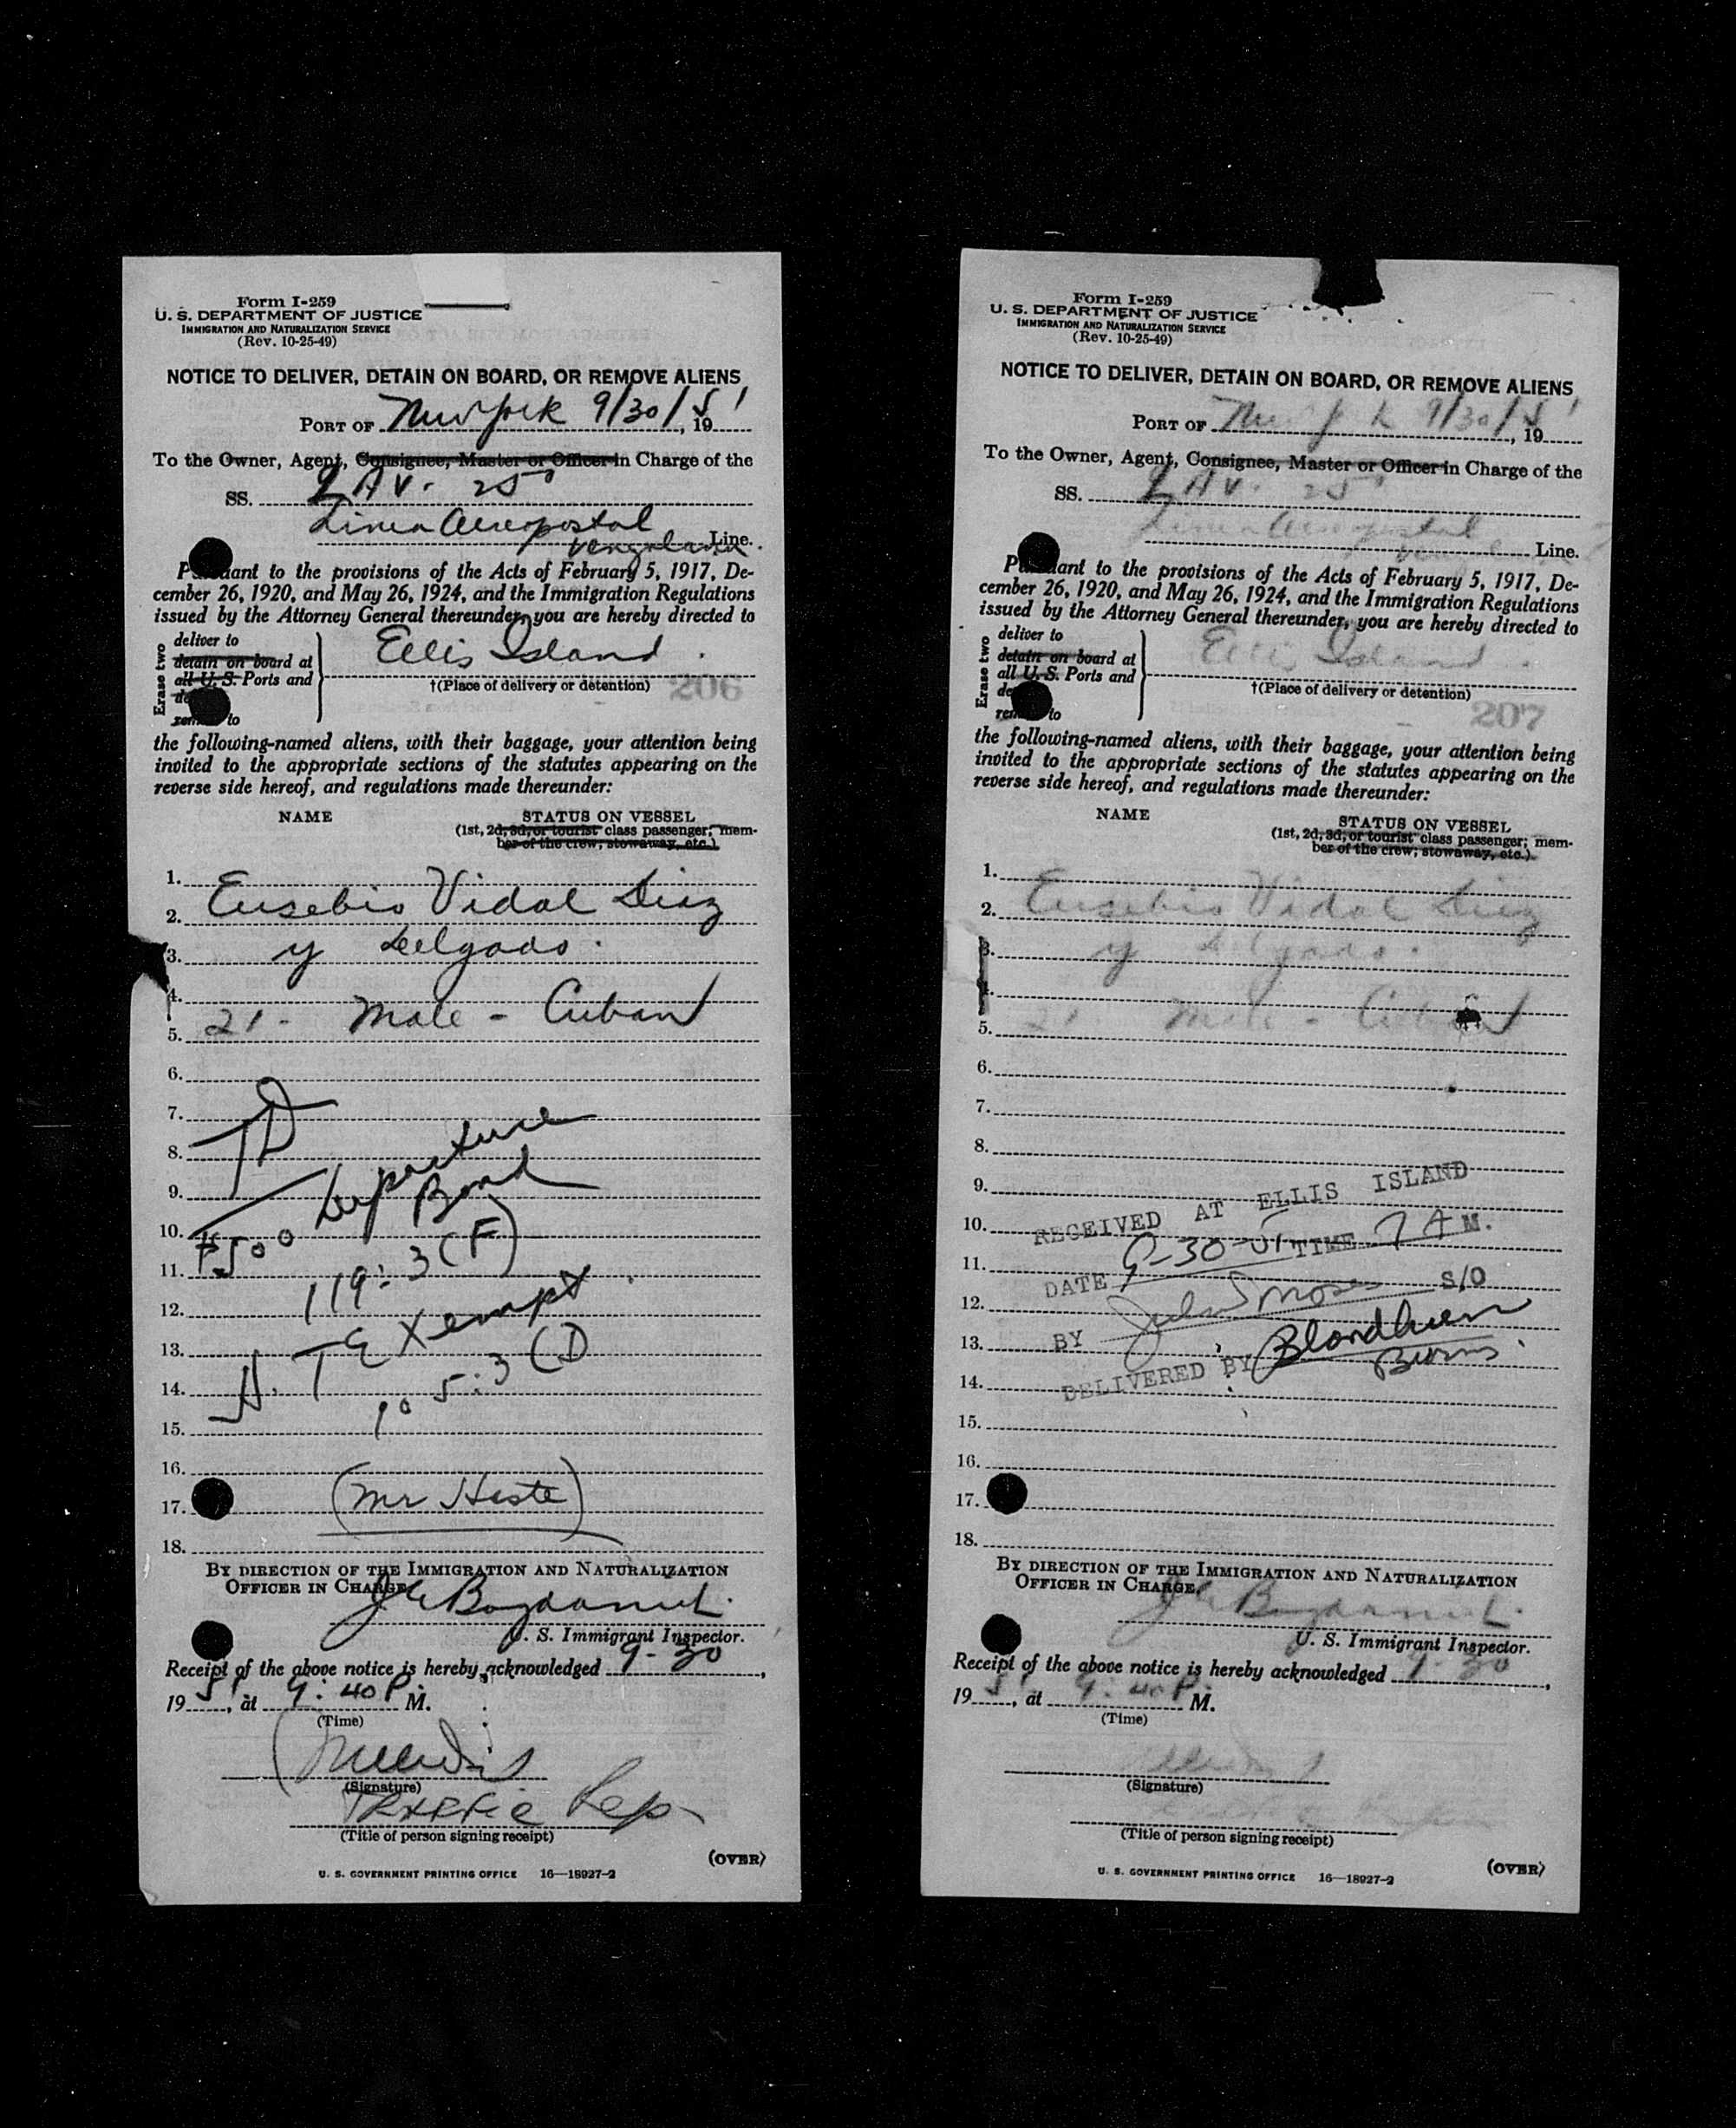 Form I-259
U. S. DEPARTMENT OF JUSTICE
IMMIGRATION AND NATURALIZATION SERVICE
(Rev. 10-25-49)
NOTICE TO DELIVER, DETAIN ON BOARD, OR REMOVE ALIENS
PORT OF New York 9/30/51, 19
To the Owner, Agent, Consignee, Master or Officer in Charge of the
SS. LAV. 25
Linea Aeropostal
Line.
Pursuant to the provisions of the Acts of February 5, 1917, De-
cember 26, 1920, and May 26, 1924, and the Immigration Regulations
issued by the Attorney General thereunder, you are hereby directed to
Erase two
deliver to
detain on board at
all U. S. Ports and
to
Ellis Island.
†(Place of delivery or detention)
206
the following-named aliens, with their baggage, your attention being
invited to the appropriate sections of the statutes appearing on the
reverse side hereof, and regulations made thereunder:
NAME STATUS ON VESSEL
(1st, 2d, 3d, or tourist class passenger; mem-
ber of the crew; stowaway, etc.)
1.
2. Eusebio Vidal Diaz
3. y Delgado.
4.
5. 21 - Male - Cuban
6.
7.
8. TD
9. Departure
10. $500 Bond
11. 119:3(F)
12.
13. H. T Exempt
14. 105:3(D
15.
16.
17. (Mr Heste)
18.
BY DIRECTION OF THE IMMIGRATION AND NATURALIZATION
OFFICER IN CHARGE
U. S. Immigrant Inspector.
Receipt of the above notice is hereby acknowledged 9-30,
1951, at 9:40 P. M.
(Time)
(Signature)
Traffic Rep
(Title of person signing receipt)
(OVER)
U. S. GOVERNMENT PRINTING OFFICE 16—18927-2
Form I-259
U. S. DEPARTMENT OF JUSTICE
IMMIGRATION AND NATURALIZATION SERVICE
(Rev. 10-25-49)
NOTICE TO DELIVER, DETAIN ON BOARD, OR REMOVE ALIENS
PORT OF New York 9/30/51, 19
To the Owner, Agent, Consignee, Master or Officer in Charge of the
SS. LAV. 25
Linea Aeropostal
Line.
Pursuant to the provisions of the Acts of February 5, 1917, De-
cember 26, 1920, and May 26, 1924, and the Immigration Regulations
issued by the Attorney General thereunder, you are hereby directed to
Erase two
deliver to
detain on board at
all U. S. Ports and
to
Ellis Island.
†(Place of delivery or detention)
207
the following-named aliens, with their baggage, your attention being
invited to the appropriate sections of the statutes appearing on the
reverse side hereof, and regulations made thereunder:
NAME STATUS ON VESSEL
(1st, 2d, 3d, or tourist class passenger; mem-
ber of the crew; stowaway, etc.)
1.
2. Eusebio Vidal Diaz
3. y Delgado.
4.
5. 21 Male - Cuban
6.
7.
8.
9.
10. RECEIVED AT ELLIS ISLAND
11. DATE 9-30-51 TIME 7 A M.
12. S/O
13. BY
14. DELIVERED BY
15.
16.
17.
18.
BY DIRECTION OF THE IMMIGRATION AND NATURALIZATION
OFFICER IN CHARGE
U. S. Immigrant Inspector.
Receipt of the above notice is hereby acknowledged 9-30,
1951, at 9:40 P. M.
(Time)
(Signature)
(Title of person signing receipt)
(OVER)
U. S. GOVERNMENT PRINTING OFFICE 16—18927-2